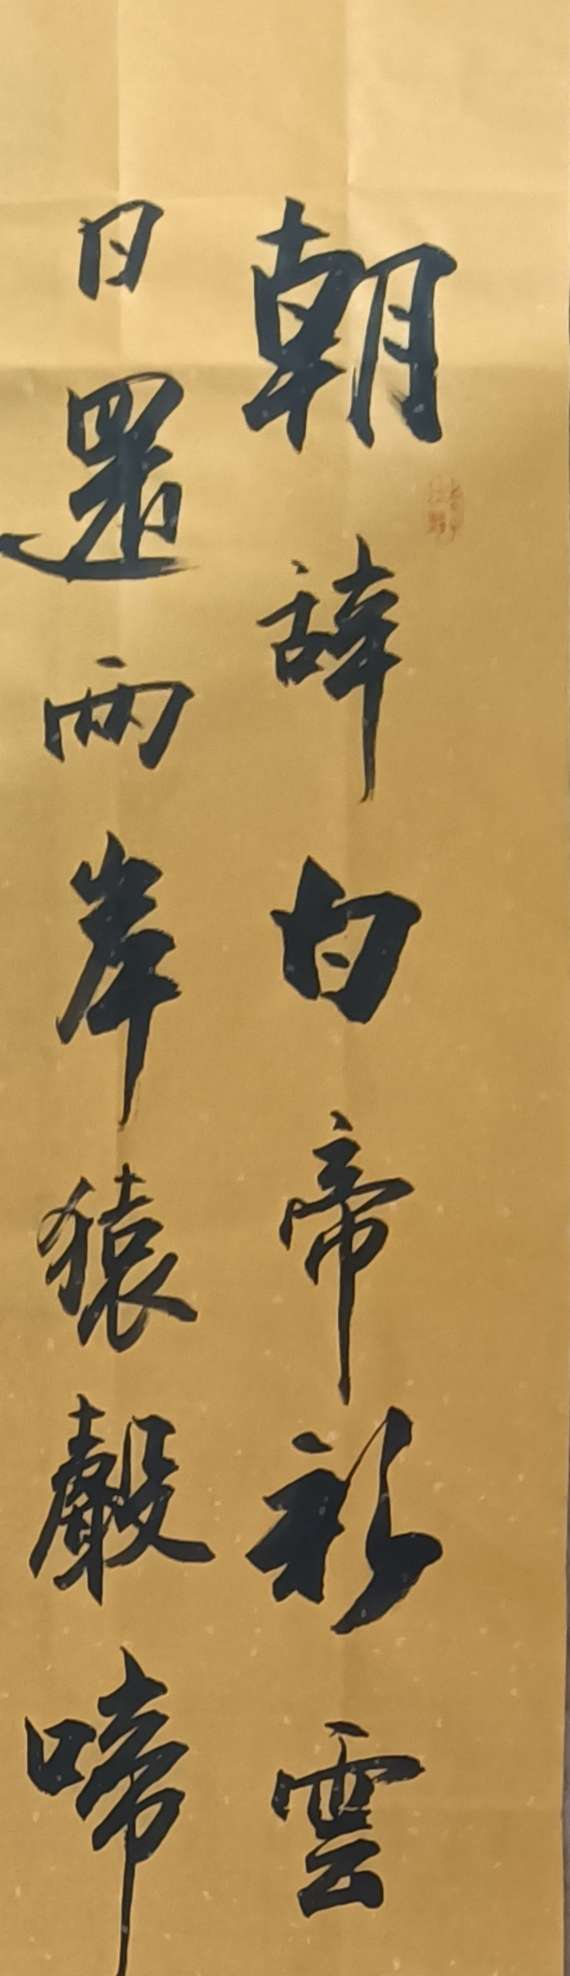 朝辞白帝彩雲
日還两岸猿聲啼